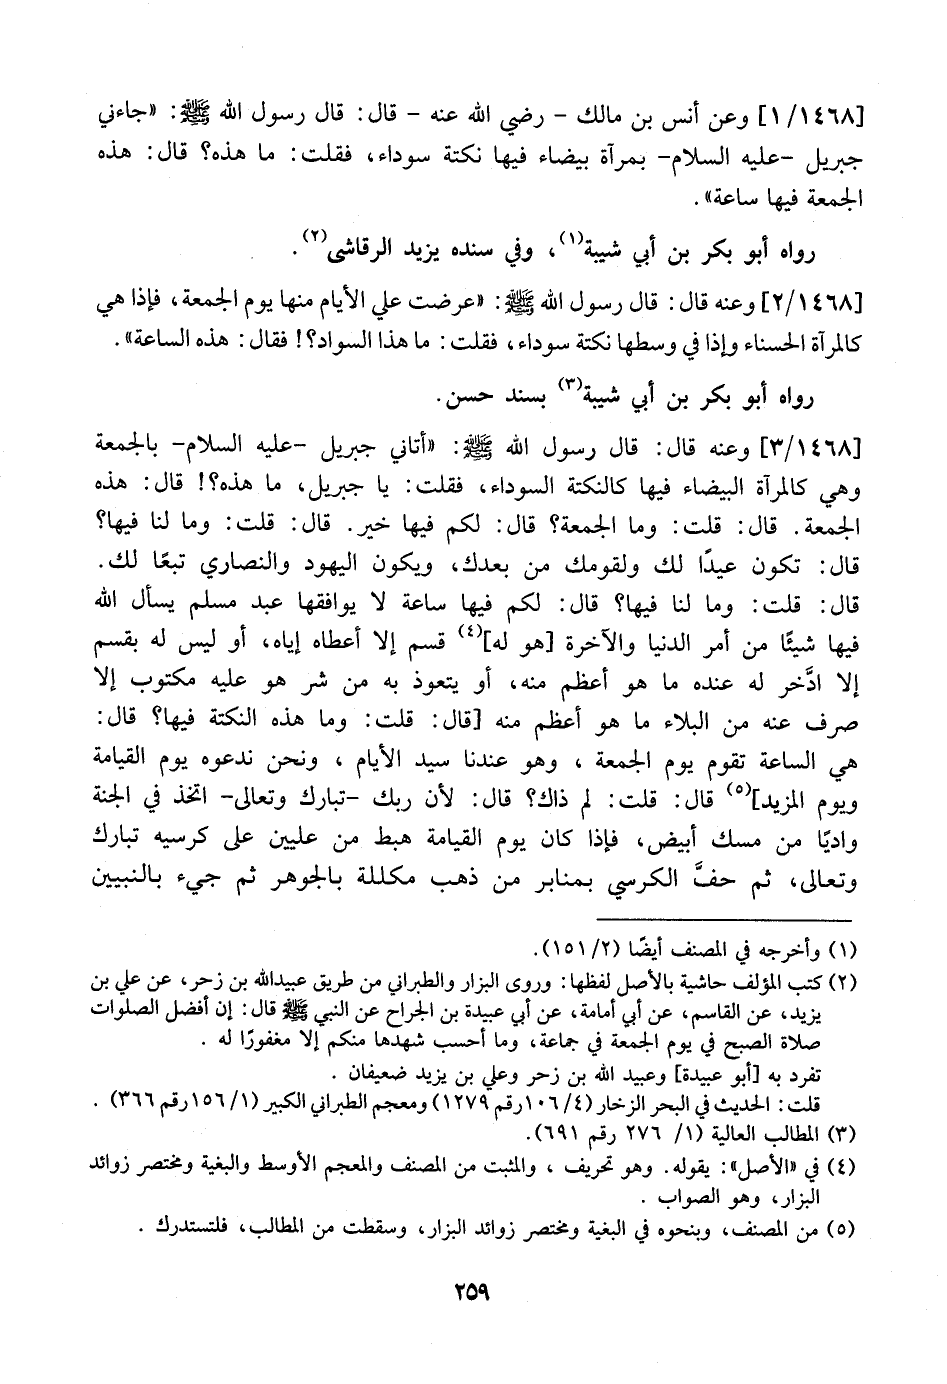 [١/١٤٦٨] وعن أنس بن مالك - رضي الله عنه - قال: قال رسول الله ﷺ: «جاءني
جبريل -عليه السلام- بمرآة بيضاء فيها نكتة سوداء، فقلت: ما هذه؟ قال: هذه
الجمعة فيها ساعة».
رواه أبو بكر بن أبي شيبة(١)، وفي سنده يزيد الرقاشي(٢).
[٢/١٤٦٨] وعنه قال: قال رسول الله ﷺ: «عرضت علي الأيام منها يوم الجمعة، فإذا هي
كالمرآة الحسناء وإذا في وسطها نكتة سوداء، فقلت: ما هذا السواد؟! فقال: هذه الساعة».
رواه أبو بكر بن أبي شيبة(٣) بسند حسن.
[٣/١٤٦٨] وعنه قال: قال رسول الله ﷺ: «أتاني جبريل -عليه السلام- بالجمعة
وهي كالمرآة البيضاء فيها كالنكتة السوداء، فقلت: يا جبريل، ما هذه؟! قال: هذه
الجمعة. قال: قلت: وما الجمعة؟ قال: لكم فيها خير. قال: قلت: وما لنا فيها؟
قال: تكون عيدًا لك ولقومك من بعدك، ويكون اليهود والنصاري تبعًا لك.
قال: قلت: وما لنا فيها؟ قال: لكم فيها ساعة لا يوافقها عبد مسلم يسأل الله
فيها شيئًا من أمر الدنيا والآخرة [هو له](٤) قسم إلا أعطاه إياه، أو ليس له بقسم
إلا ادَّخر له عنده ما هو أعظم منه، أو يتعوذ به من شر هو عليه مكتوب إلا
صرف عنه من البلاء ما هو أعظم منه [قال: قلت: وما هذه النكتة فيها؟ قال:
هي الساعة تقوم يوم الجمعة ، وهو عندنا سيد الأيام ، ونحن ندعوه يوم القيامة
ويوم المزيد](٥) قال: قلت: لم ذاك؟ قال: لأن ربك -تبارك وتعالى- اتخذ في الجنة
واديًا من مسك أبيض، فإذا كان يوم القيامة هبط من عليين على كرسيه تبارك
وتعالى، ثم حفَّ الكرسي بمنابر من ذهب مكللة بالجوهر ثم جيء بالنبيين
(١) وأخرجه في المصنف أيضًا (٢/ ١٥١).
(٢) كتب المؤلف حاشية بالأصل لفظها: وروى البزار والطبراني من طريق عبيدالله بن زحر، عن علي بن
يزيد، عن القاسم، عن أبي أمامة، عن أبي عبيدة بن الجراح عن النبي ﷺ قال: إن أفضل الصلوات
صلاة الصبح في يوم الجمعة في جماعة، وما أحسب شهدها منكم إلا مغفورًا له .
تفرد به [أبو عبيدة] وعبيد الله بن زحر وعلي بن يزيد ضعيفان .
قلت: الحديث في البحر الزخار (٤/ ١٠٦رقم ١٢٧٩) ومعجم الطبراني الكبير (١/ ١٥٦رقم ٣٦٦) .
(٣) المطالب العالية (١/ ٢٧٦ رقم ٦٩١).
(٤) في «الأصل»: يقوله. وهو تحريف ، والمثبت من المصنف والمعجم الأوسط والبغية ومختصر زوائد
البزار، وهو الصواب .
(٥) من المصنف، وبنحوه في البغية ومختصر زوائد البزار، وسقطت من المطالب، فلتستدرك .
٢٥٩